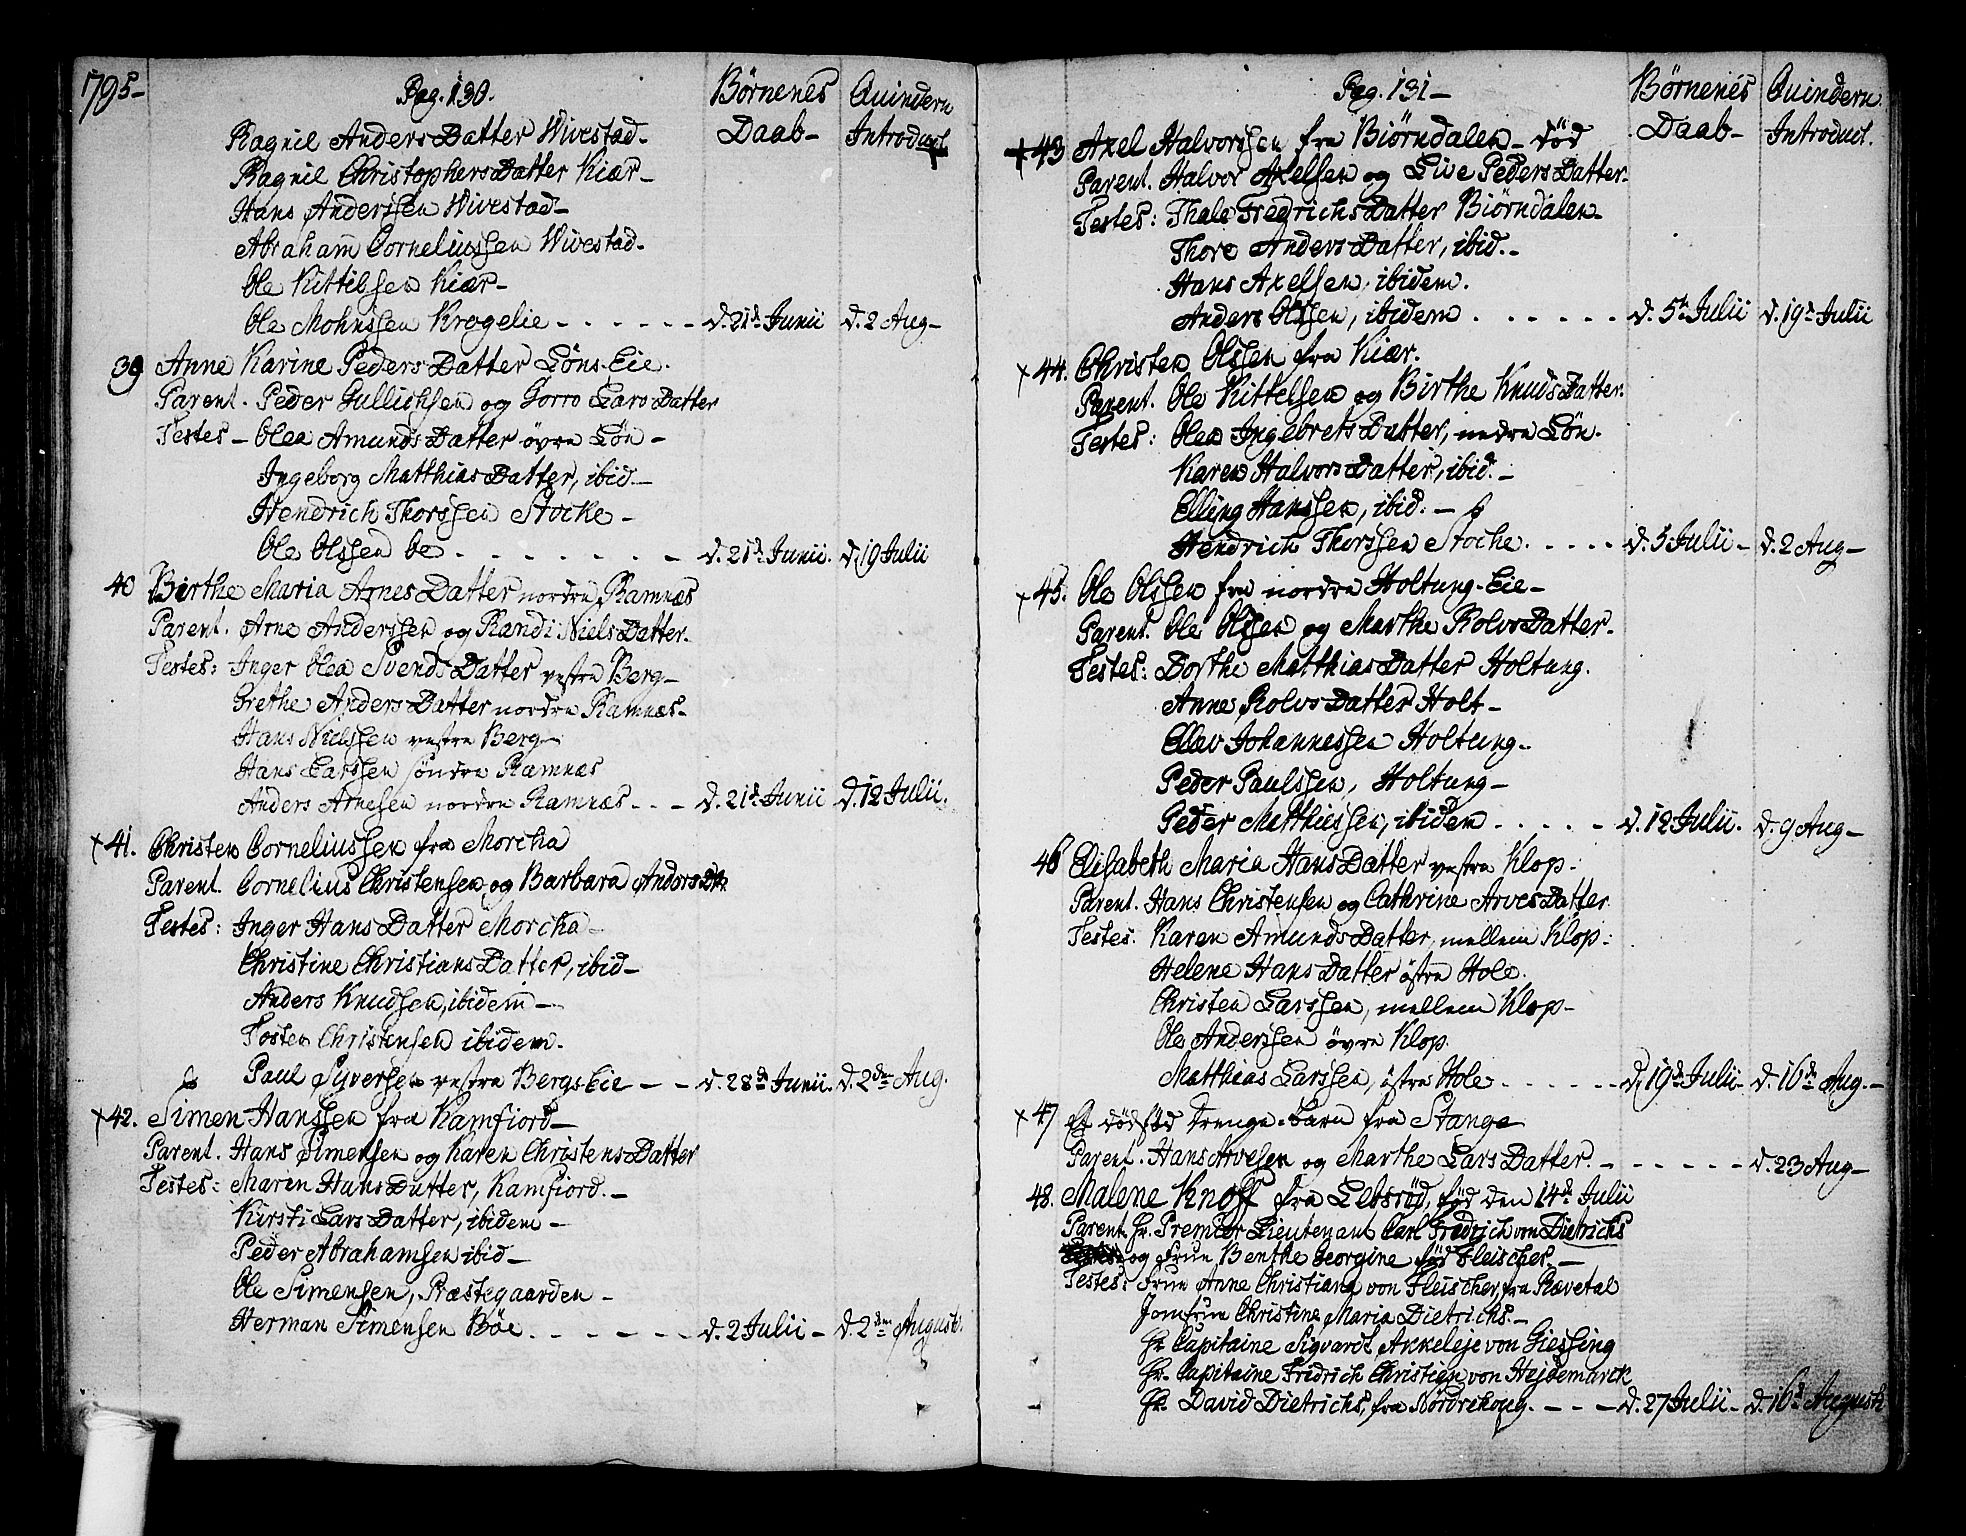 1795-
Pag. 130.
Børnenes Daab-
Quindern Introduct.
Ragnil Anders Datter Wivestad-
Ragnil Christophers Datter Kiær-
Hans Anderssen Wivestad-
Abraham Corneliussen Wivestad.
Ole Kittilssen Kiær-
Ole Mohnssen Krogelie - - - - - - d. 21d Junii d. 2 Aug-
39 Anne Karine Peders Datter Løns-Eie.
Parent. Peder Gullichsen og Gorro Lars Datter
Testes - Olea Amunds Datter øvre Løn -
Ingeborg Matthias Datter, ibid.-
Hendrich Thorssen Stocke -
Ole Olssen Be - - - - - - - d. 21d Junii. d. 19 Julii
40 Birthe Maria Arnes Datter nordre Ramnæs
Parent. Arne Anderssen og Randi Niels Datter.
Testes: Inger Olea Svends Datter vestre Berg-
Grethe Anders Datter nordre Ramnæs-
Hans Nielssen vestre Berg-
Hans Larssen søndre Ramnæs
Anders Arnesen nordre Ramnæs - - - d. 21d Junii d. 12 Julii.
+ 41. Christen Corneliussen fra Morcka
Parent. Cornelius Christensen og Barbara Anders Dtr.
Testes: Inger Hans Datter Morcka -
Christine Christians Datter, ibid-
Anders Knudsen, ibidem-
Tosten Christensen ibidem.
Paul Syversen vestre Bergs Eie - - d. 28d Junii. d. 2den Aug.
+ 42. Simen Hanssen fra Kamfiord-
Parent. Hans Simensen og Karen Christens Datter
Testes: Maren Hans Datter, Kamfiord.-
Kirsti Lars Datter, ibidem -
Peder Abrahamsen ibid-
Ole Simensen, Præstegaarden -
Herman Simensen Bøe - - - - - d. 2 Julii - d. 2den Augusti.
Pag. 131-
Børnenes Daab-
Quindern Introduct.
+ 43 Axel Halvorssen fra Biørndalen- død
Parent. Halvor Axelsen og Live Peders Datter-
Testes: Thale Fredrichs Datter Biørndalen-
Thore Anders Datter, ibid.-
Hans Axelsen, ibidem.
Anders Olssen, ibidem - - - - - - d. 5t Julii d. 19d Julii
+ 44. Christen Olssen fra Kiær.
Parent. Ole Kittelsen og Birthe Knuds Datter.
Testes: Olea Ingebrets Datter, nedre Løn.
Karen Halvors Datter, ibid.-
Elling Hanssen, ibid.-
Hendrich Thorssen Stocke. - - - - d. 5 Julii - d. 2 Aug-
+ 45. Ole Olssen fra nordre Holtung-Eie-
Parent. Ole Olssen og Marthe Rolvs Datter-
Testes: Dorthe Matthias Datter Holtung.
Anne Rolvs Datter Holt-
Ellev Johannessen Holtung-
Peder Paulssen, Holtung-
Peder Matthiessen, ibidem - - - - - d. 12 Julii. d. 9 Aug-
46 Elisabeth Maria Hans Datter vestre Klop.
Parent. Hans Christensen og Cathrine Arves Datter
Testes. Karen Amunds Datter, mellem Klop:
Helene Hans Datter østre Hole.
Christen Larssen, mellem Klop-
Ole Anderssen øvre Klop.
Matthias Larssen, østre Hole - - - - - - d. 19d Julii - d. 16de Aug.-
+ 47 Et dødfød Drenge-barn fra Stange
Parent. Hans Arvesen og Marthe Lars Datter. - - - - - - d. 23 Aug-
48. Malene Knoff fra Lebsrød, fød den 14d Julii
Parent. Hr Premier Lieutenant Carl Fredrich von Dietrichs
og Frue Benthe Georgine fød Fleischer.-
Testes: Frue Anne Christiana von Fleischer, fra Rævetal
Jomfrue Christine Maria Dietrichs.-
Hr Capitaine Sigvardt Akkeleje von Giessing
Hr. Capitaine Fredrich Christian von Hejdemarck
Hr. David Dietrichs, fra Nordrehoug. - - - d. 27 Julii - d. 16d Augusti